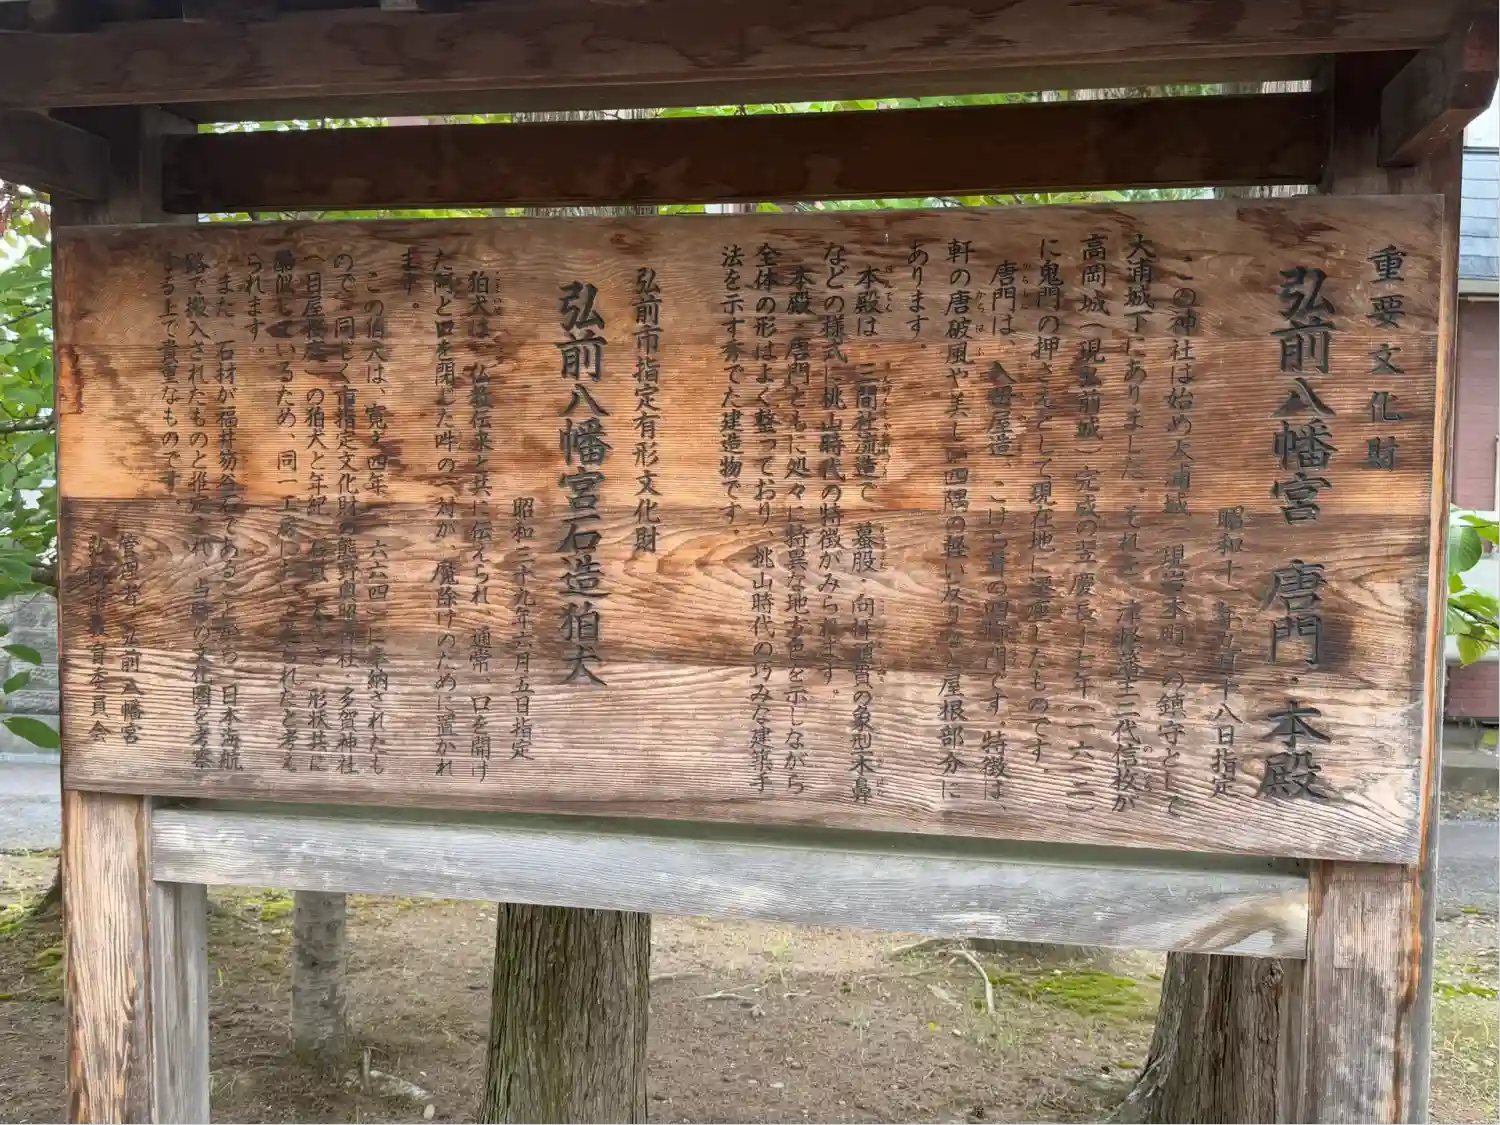 重要文化財
弘前八幡宮 唐門・本殿
昭和十一年五月十八日指定
この神社は始め大浦城(現岩木町)の鎮守として
大浦城下にありました。それを、津軽藩主二代信枚が
高岡城(現弘前城)完成の翌慶長十七年(一六一二)
に鬼門の押さえとして現在地に遷座したものです。
唐門は、入母屋造、こけら葺の四脚門です。特徴は、
軒の唐破風や美しい四隅の軽い反りなど屋根部分に
あります。
本殿は、三間社流造で、蟇股・向拝頭貫の象型木鼻
などの様式に桃山時代の特徴がみられます。
本殿・唐門ともに処々に特異な地方色を示しながら
全体の形はよく整っており、桃山時代の巧みな建築手
法を示す秀でた建造物です。
弘前市指定有形文化財
弘前八幡宮石造狛犬
昭和二十九年六月五日指定
狛犬は、仏教伝来と共に伝えられ、通常、口を開け
た阿と口を閉じた吽の一対が、魔除けのために置かれ
ます。
この狛犬は、寛文四年(一六六四)に奉納されたも
ので、同じく市指定文化財の熊野奥照神社・多賀神社
(目屋 )の狛犬と年紀・石質・大きさ・形状共に
酷似しているため、同一工房に れたと考え
られます。
また、石材が福井笏谷石であることから、日本海航
路で搬入されたものと推定され、当時の文化圏を考察
する上で貴重なものです。
管理者 弘前八幡宮
弘前市教育委員会